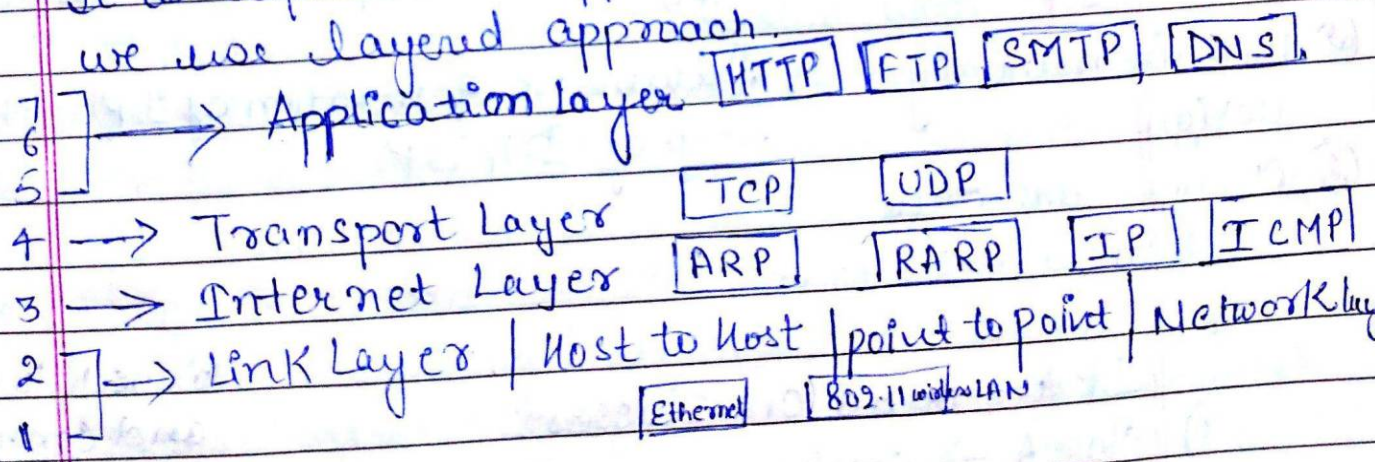 we use layered approach.
7 6 5 → Application layer HTTP FTP SMTP, DNS.
4 → Transport Layer TCP UDP
3 → Internet Layer ARP RARP IP ICMP
2 1 → Link Layer | Host to Host | point to point | Network lay
Ethernet 802.11 wireless LAN